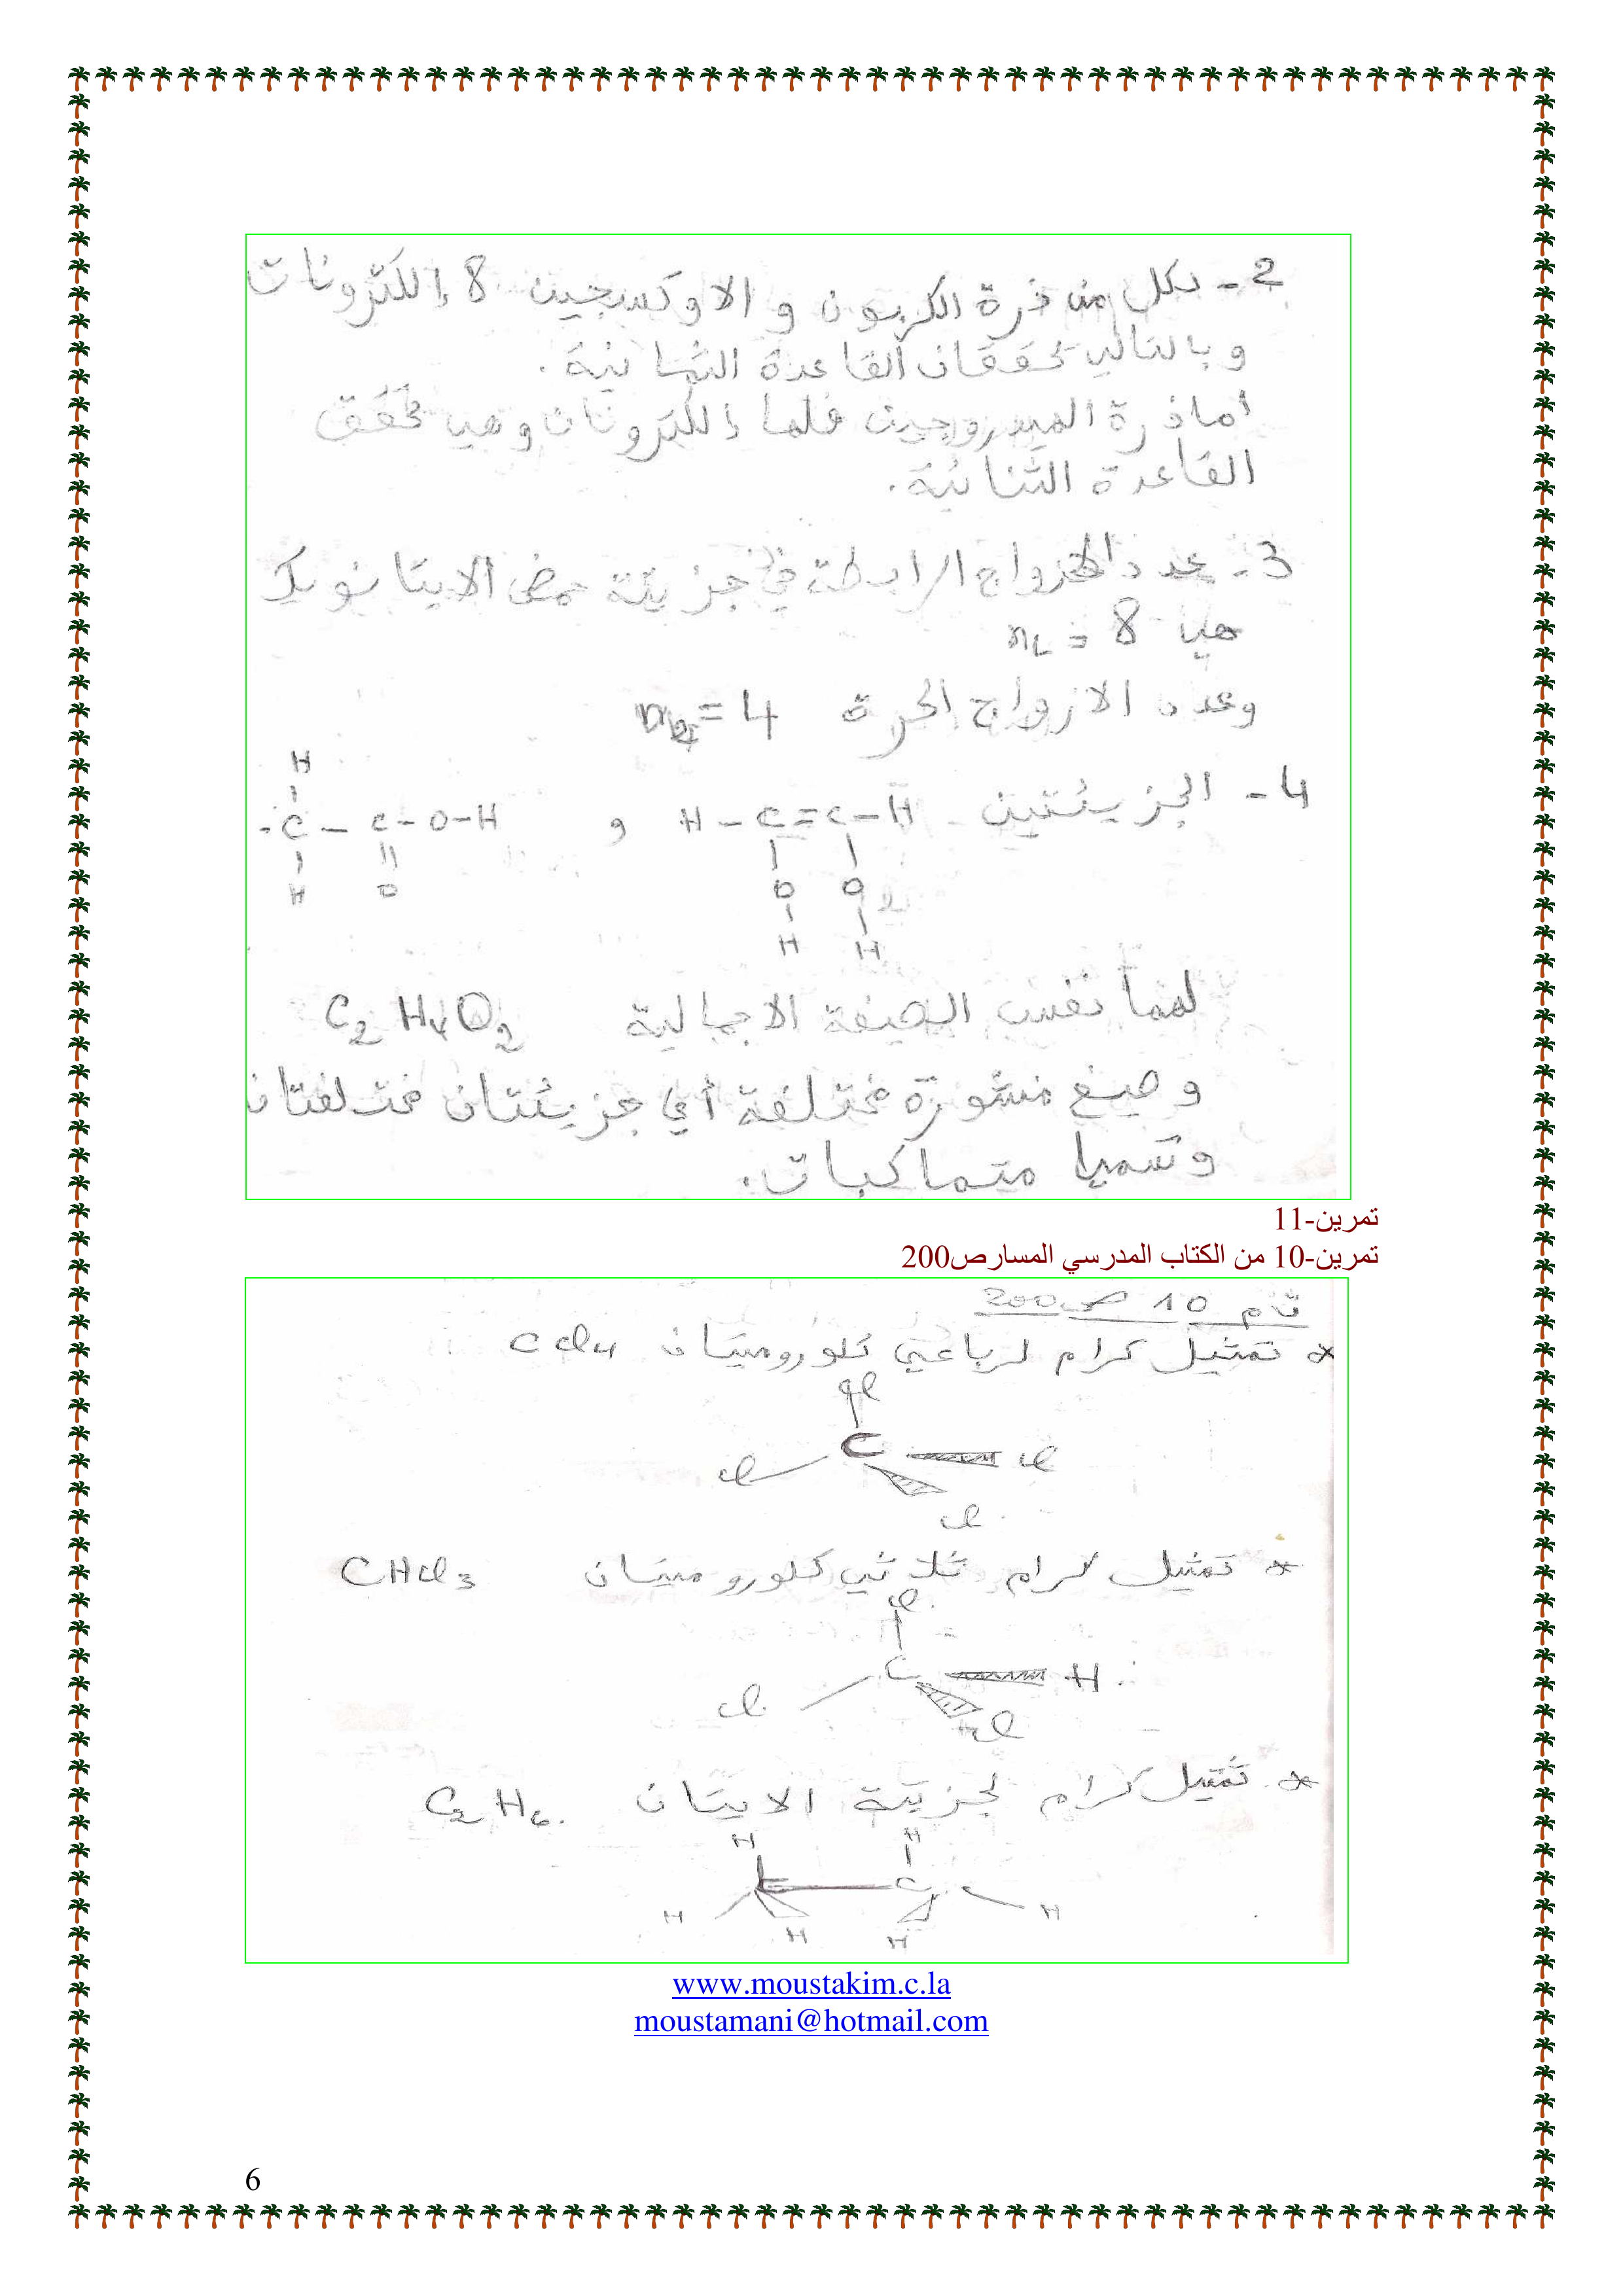 2- لكل من ذرة الكربون و الاوكسجين 8 إلكترونات
وبالتالي تحققان القاعدة الثمانية.
أما ذرة الهيدروجين فلها إلكترونان وهي تحقق
القاعدة الثنائية.
3- عدد الازواج الرابطة في جزيئة حمض الايتانويك
هي nL = 8
وعدد الازواج الحرة = 4
4- الجزيئتين H - C = C - H و - C - C - O - H
H
H O O O
H H
لهما نفس الصيغة الاجمالية C2H4O2
وصيغ منشورة مختلفة أي جزيئتان مختلفتان
وتسميا متماكبات.
تمرين-11
تمرين-10 من الكتاب المدرسي المسارص200
تم 10 ص 200
* تمثيل كرام لرباعي كلوروميتان CCl4
Cl
C
Cl Cl
Cl
* تمثيل كرام ثلاثي كلوروميتان CHCl3
Cl
C H
Cl Cl
* تمثيل كرام لجزيئة الايتان C2H6.
H H
C C
H H H H
www.moustakim.c.la
moustamani@hotmail.com
6